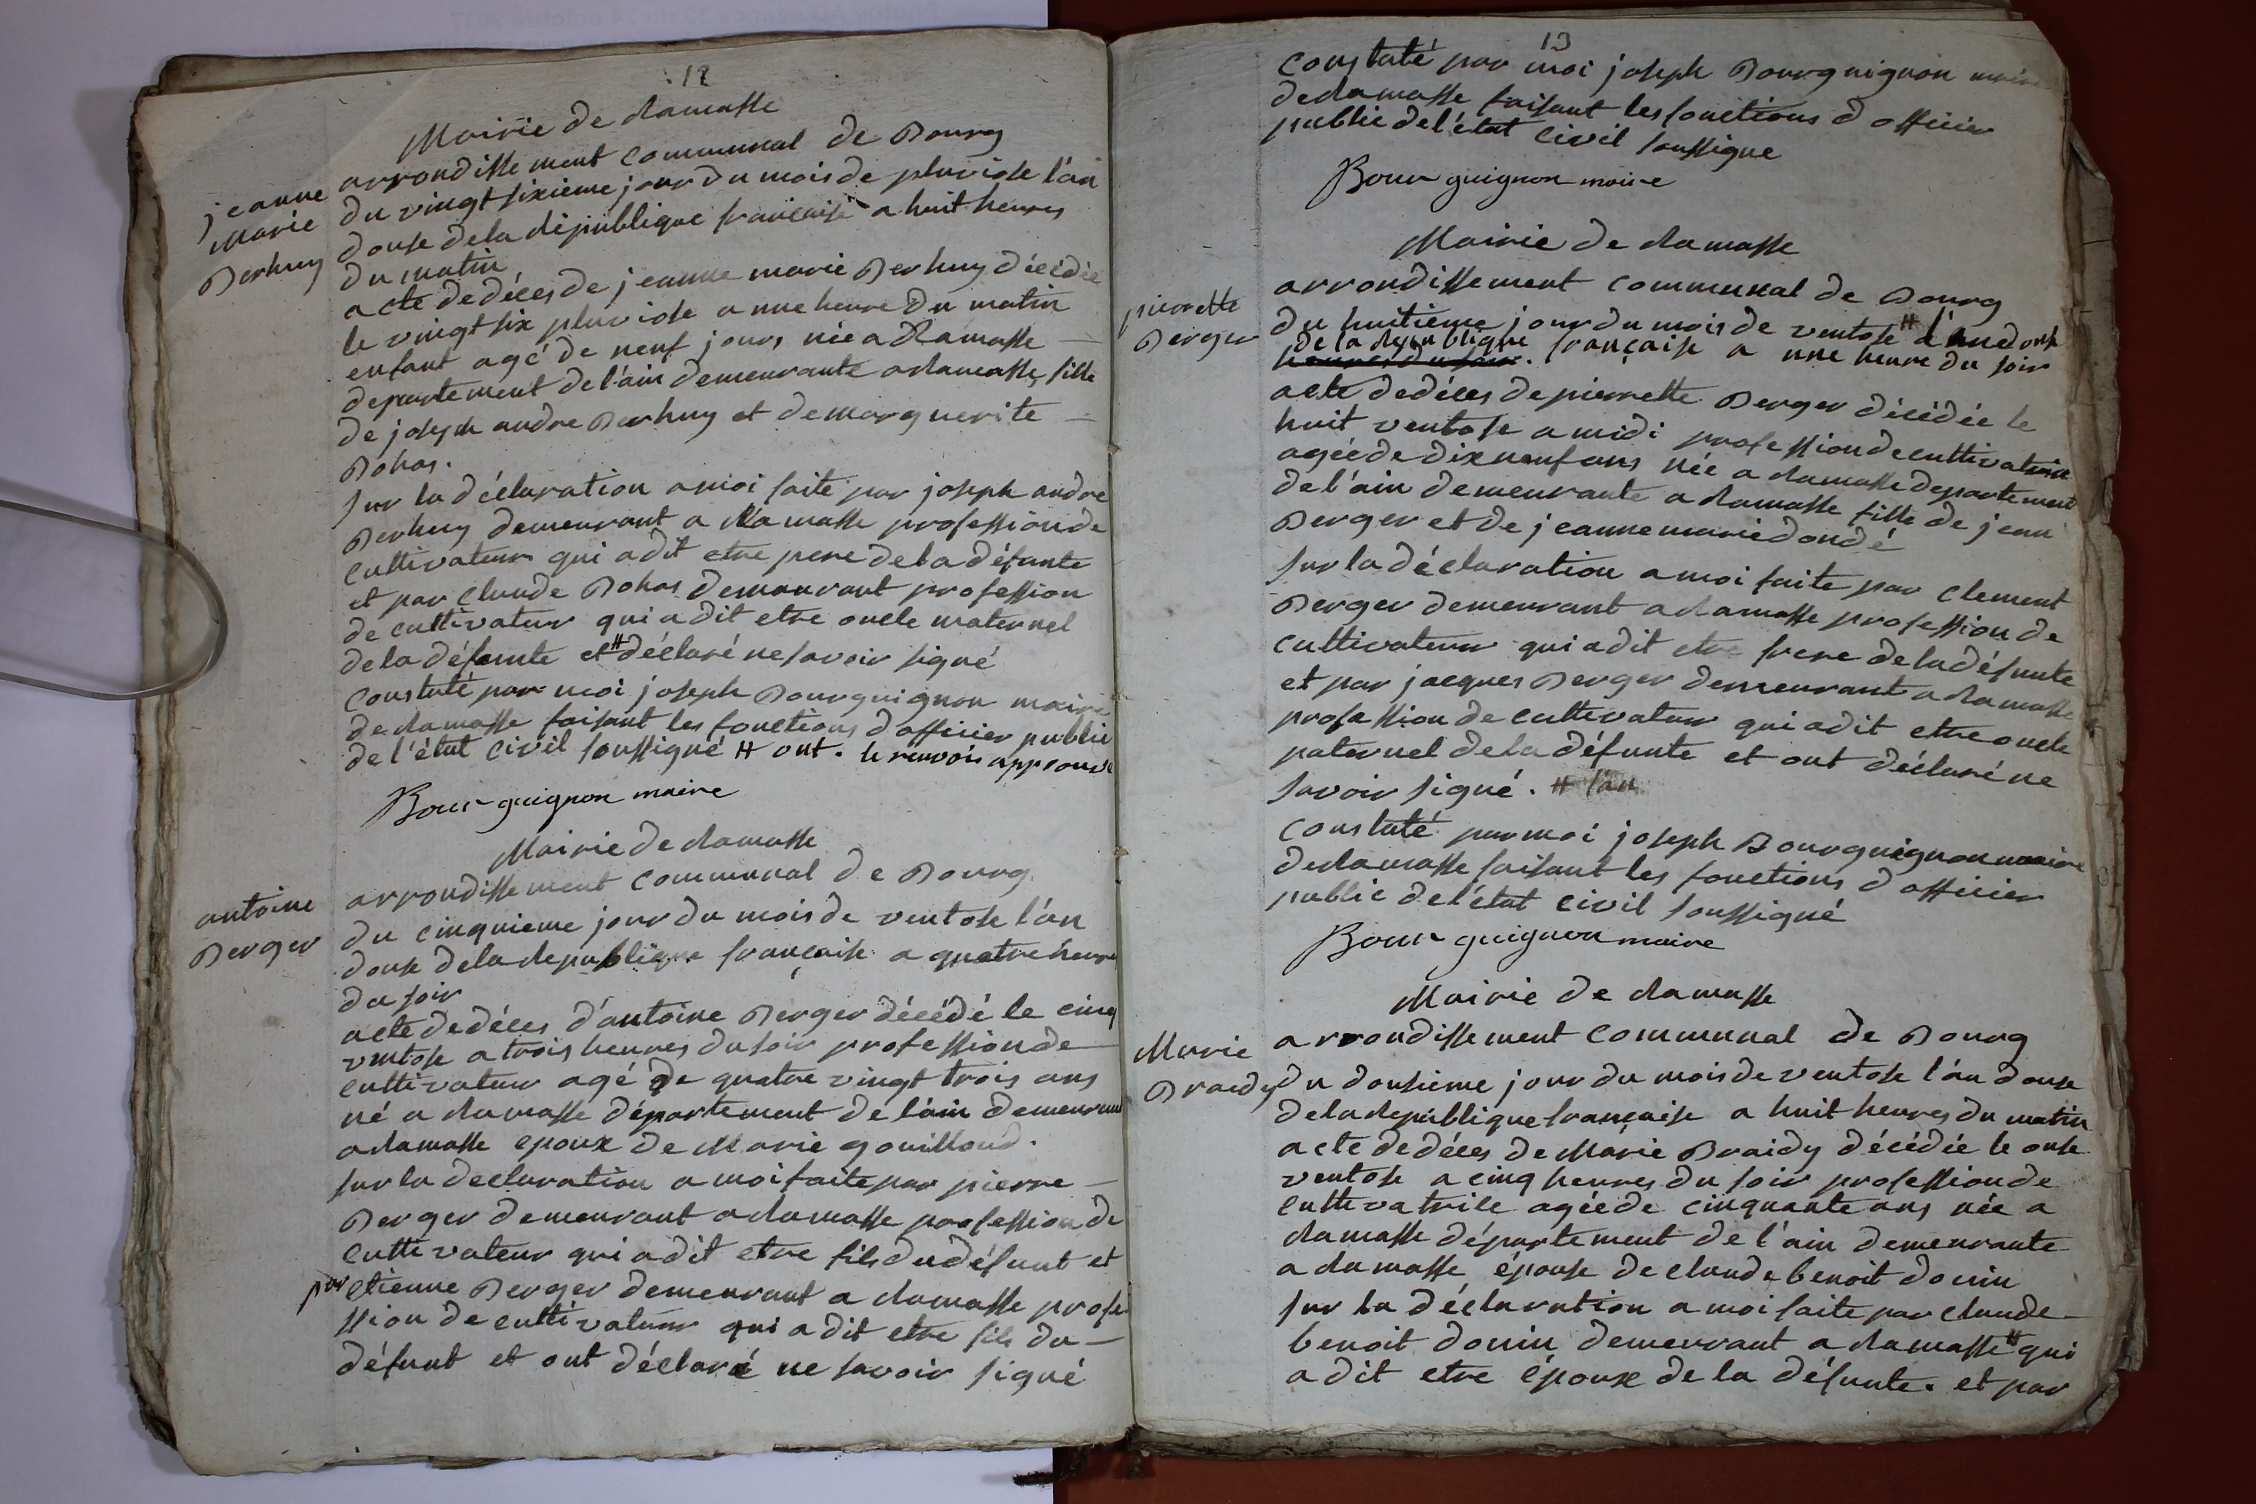 12
Mairie de Ramasse
arrondissement communal de Bourg
jeanne
Marie
Berhuy
du vingt sixieme jour du mois de pluviose l'an
douse de la République française a huit heures
du matin
acte de décès de jeanne marie Berhuy décédée
le vingt six pluviose a une heure du matin
enfant agé de neuf jours née a Ramasse
departement de l'ain demeurante a Ramasse fille
de joseph andre Berhuy et de marguerite
Bohas.
sur la déclaration a moi faite par joseph andre
Berhuy demeurant a Ramasse profession de
cultivateur qui a dit etre pere de la défunte
et par claude Bohas demeurant profession
de cultivateur qui a dit etre oncle maternel
de la défunte et # déclaré ne savoir signé
constaté par moi joseph Bourguignon maire
de Ramasse faisant les fonctions d'officier public
de l'état civil soussigné # ont. le renvois approuvé
Bourguignon maire
Mairie de Ramasse
arrondissement communal de Bourg
antoine
Berger
du cinquieme jour du mois de ventose l'an
douse de la Republique française a quatre heures
du soir
acte de décès d'antoine Berger décédé le cinq
ventose a trois heures du soir profession de
cultivateur agé de quatre vingt trois ans
né a Ramasse département de l'ain demeurant
a Ramasse epoux de Marie gouilloud.
sur la declaration a moi faite par pierre
Berger demeurant a Ramasse profession de
cultivateur qui a dit etre fils du défunt et
par etienne Berger demeurant a Ramasse profe
ssion de cultivateur qui a dit etre fils du
défunt et ont déclaré ne savoir signé
13
constaté par moi joseph Bourguignon maire
de Ramasse faisant les fonctions d officier
public de l'état civil soussigné
Bourguignon maire
Mairie de Ramasse
arrondissement communal de Bourg
pierrette
Berger
du huitieme jour du mois de ventose # douse
de la République française a une heure du soir
heures du soir.
acte de décès de pierrette Berger décédée le
huit ventose a midi profession de cultivatrice
agée de dix neuf ans née a Ramasse departement
de l'ain demeurante a Ramasse fille de jean
Berger et de jeanne marie dondé
sur la déclaration a moi faite par clement
Berger demeurant a Ramasse profession de
cultivateur qui a dit etre frere de la défunte
et par jacques Berger demeurant a Ramasse
profession de cultivateur qui a dit etre oncle
paternel de la défunte et ont déclaré ne
savoir signé. # l'an
constaté par moi joseph Bourguignon maire
de Ramasse faisant les fonctions d officier
public de l'état civil soussigné
Bourguignon maire
Mairie de Ramasse
arrondissement communal de Bourg
Marie
Braidy
du dousieme jour du mois de ventose l'an douse
de la Republique française a huit heures du matin
acte de décès de Marie Braidy décédée le onse
ventose a cinq heures du soir profession de
cultivatrise agée de cinquante ans née a
Ramasse département de l'ain demeurante
a Ramasse épouse de claude benoit donin
sur la déclaration a moi faite par claude
benoit donin demeurant a Ramasse # qui
a dit etre époux de la défunte. et par